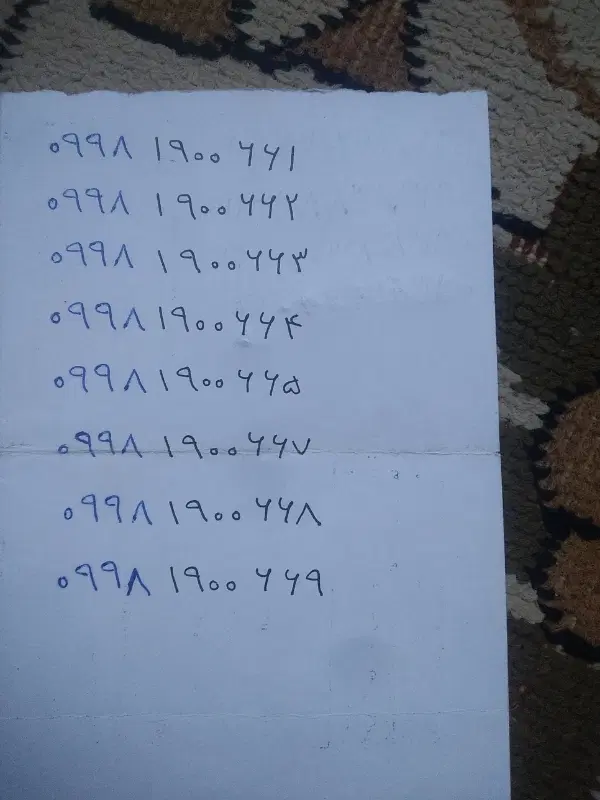 ۰۹۹۸ ۱۹۰۰ ۶۶۱
۰۹۹۸ ۱۹۰۰ ۶۶۲
۰۹۹۸ ۱۹۰۰ ۶۶۳
۰۹۹۸ ۱۹۰۰ ۶۶۴
۰۹۹۸ ۱۹۰۰ ۶۶۵
۰۹۹۸ ۱۹۰۰ ۶۶۷
۰۹۹۸ ۱۹۰۰ ۶۶۸
۰۹۹۸ ۱۹۰۰ ۶۶۹